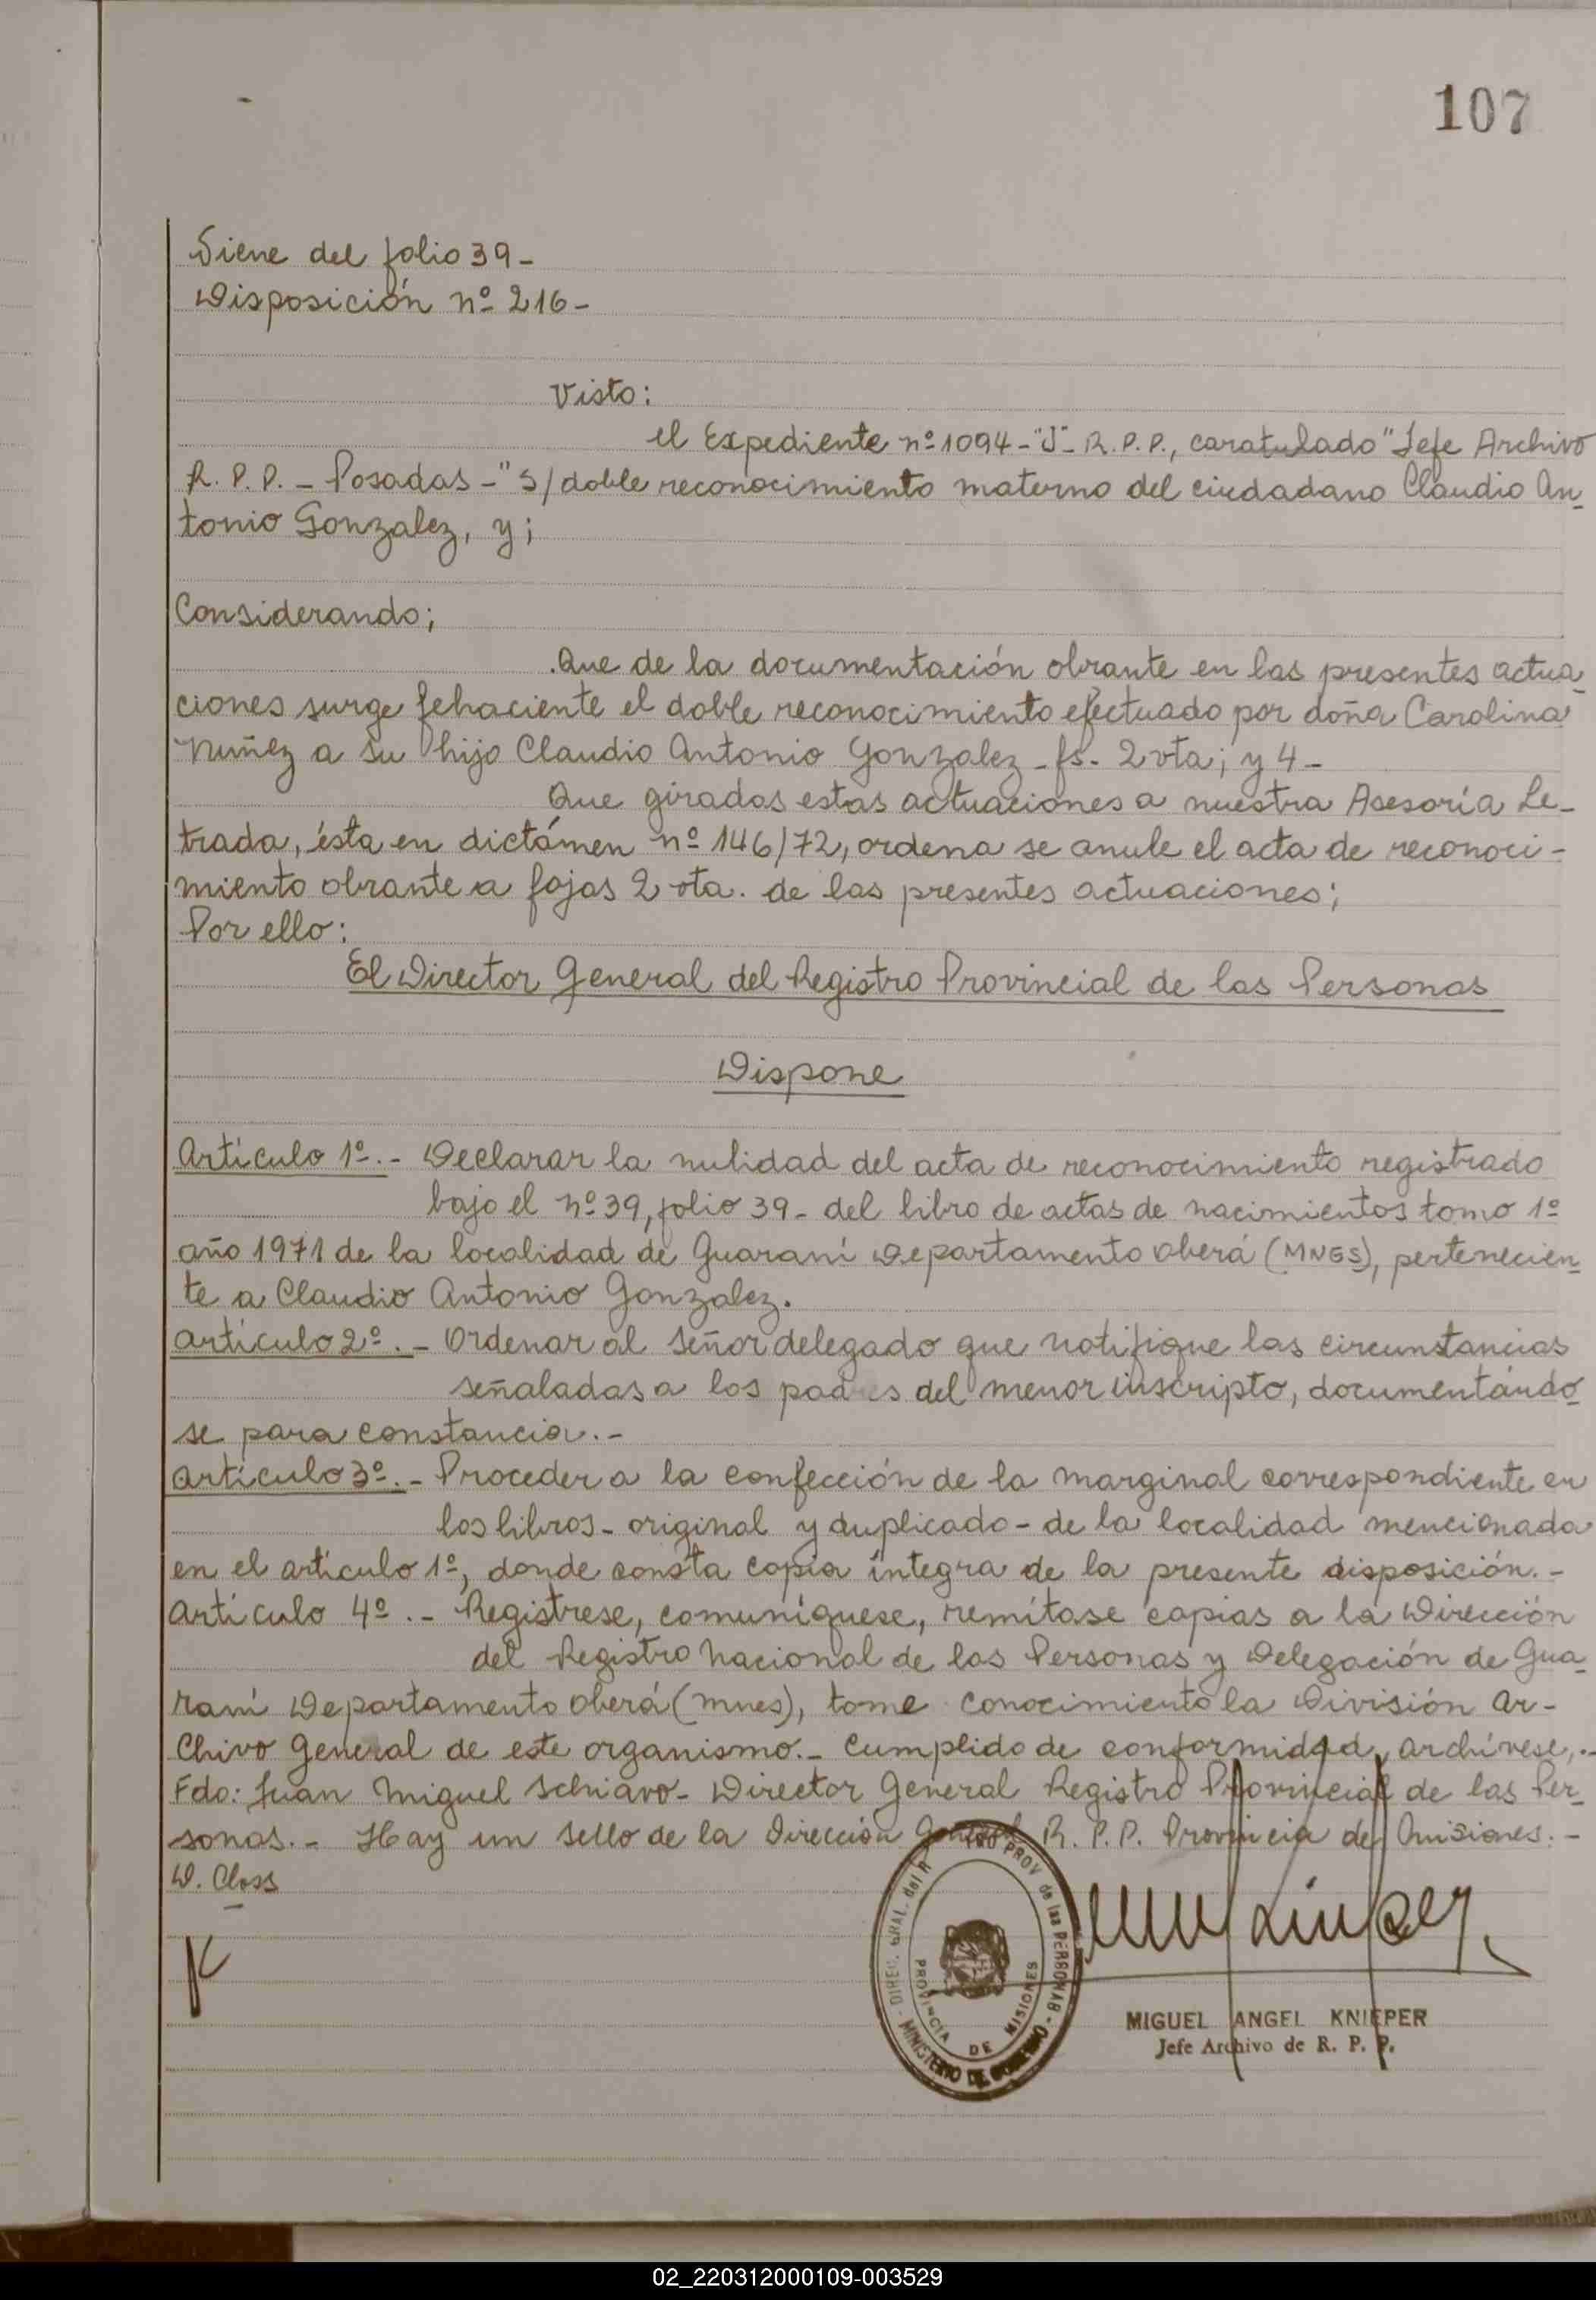 107
Viene del folio 39-
Disposición nº 216-
Visto:
el Expediente nº 1094-"J"- R.P.P., caratulado "Jefe Archivo
R.P.P. - Posadas -" S/doble reconocimiento materno del ciudadano Claudio An-
tonio Gonzalez, y;
Considerando;
.Que de la documentación obrante en las presentes actua-
ciones surge fehaciente el doble reconocimiento efectuado por doña Carolina
Nuñez a su hijo Claudio Antonio Gonzalez - fs. 2 vta; y 4 -
Que giradas estas actuaciones a nuestra Asesoría Le-
trada, ésta en dictámen nº 146/72, ordena se anule el acta de reconoci-
miento obrante a fojas 2 vta. de las presentes actuaciones;
Por ello:
El Director General del Registro Provincial de las Personas
Dispone
Artículo 1º.- Declarar la nulidad del acta de reconocimiento registrado
bajo el nº 39, folio 39- del libro de actas de nacimientos tomo 1º
año 1971 de la localidad de Guaraní Departamento Oberá (MNES), pertenecien-
te a Claudio Antonio Gonzalez.
Artículo 2º.- Ordenar al señor delegado que notifique las circunstancias
señaladas a los padres del menor inscripto, documentándo-
se para constancia.-
Artículo 3º.- Proceder a la confección de la marginal correspondiente en
los libros - original y duplicado - de la localidad mencionada
en el artículo 1º, donde consta copia íntegra de la presente disposición.-
Artículo 4º.- Registrese, comuníquese, remítase copias a la Dirección
del Registro Nacional de las Personas y Delegación de Gua-
raní Departamento Oberá (mnes), tome conocimiento la División Ar-
chivo General de este organismo.- Cumplido de conformidad, archívese,.-
Fdo: Juan Miguel Schiavo- Director General Registro Provincial de las Per-
sonas.- Hay un sello de la Dirección General R.P.P. Provincia de Misiones.-
D. Closs
MINISTERIO DE GOBIERNO - DIREC. GRAL. del R PROV de las PERSONAS
PROVINCIA DE MISIONES
MIGUEL ANGEL KNIEPER
Jefe Archivo de R. P. P.
02_220312000109-003529